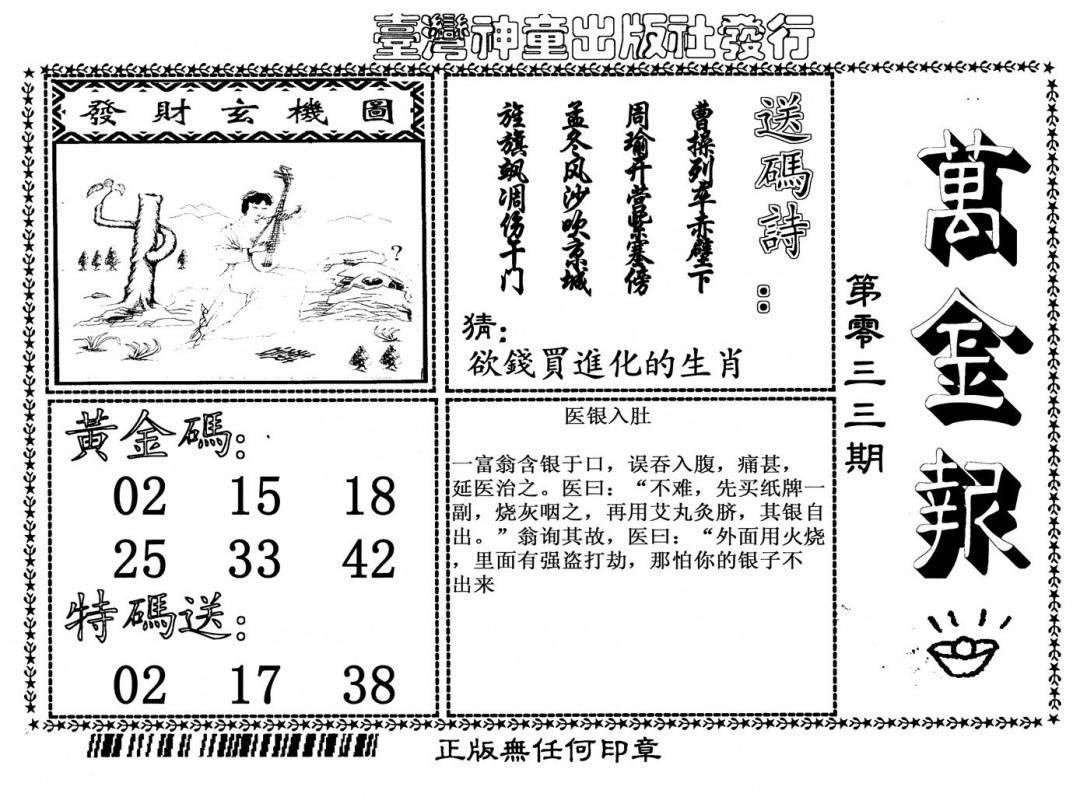 臺灣神童出版社發行
萬金報
第零三三期
發財玄機圖
?
送碼詩：
曹操列车赤壁下
周瑜开营紫塞傍
孟冬风沙吹京城
旌旗飒凋伤千门
猜：
欲錢買進化的生肖
黃金碼：
02 15 18
25 33 42
特碼送：
02 17 38
医银入肚
一富翁含银于口，误吞入腹，痛甚，
延医治之。医曰：“不难，先买纸牌一
副，烧灰咽之，再用艾丸灸脐，其银自
出。”翁询其故，医曰：“外面用火烧
，里面有强盗打劫，那怕你的银子不
出来
正版無任何印章